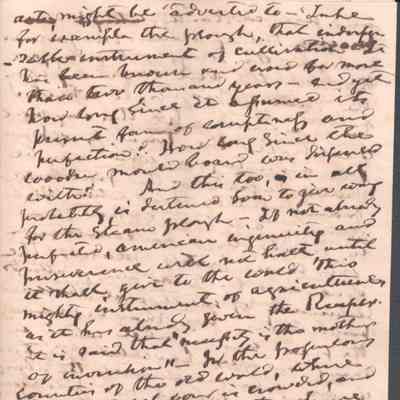 acts, might be adverted to - Take
for example the plough, that indispen
- sable instrument of cultivation
has been known and used for more
than two thousand years - and yet
how long since it assumed its
present form of completeness and
perfection? How long since the
wooden mould board was dispensed
with? And this too, in all
probability is destined soon to give way
for the Steam plough - If not already
perfected, american ingenuity and
perseverance will not halt until
it shall give to the world this
mighty instrument of agriculture
as it has already given the Reaper.
it is said that "necessity is the mother
of invention" - In the populous
Counties of the old world, where
is crowded, and